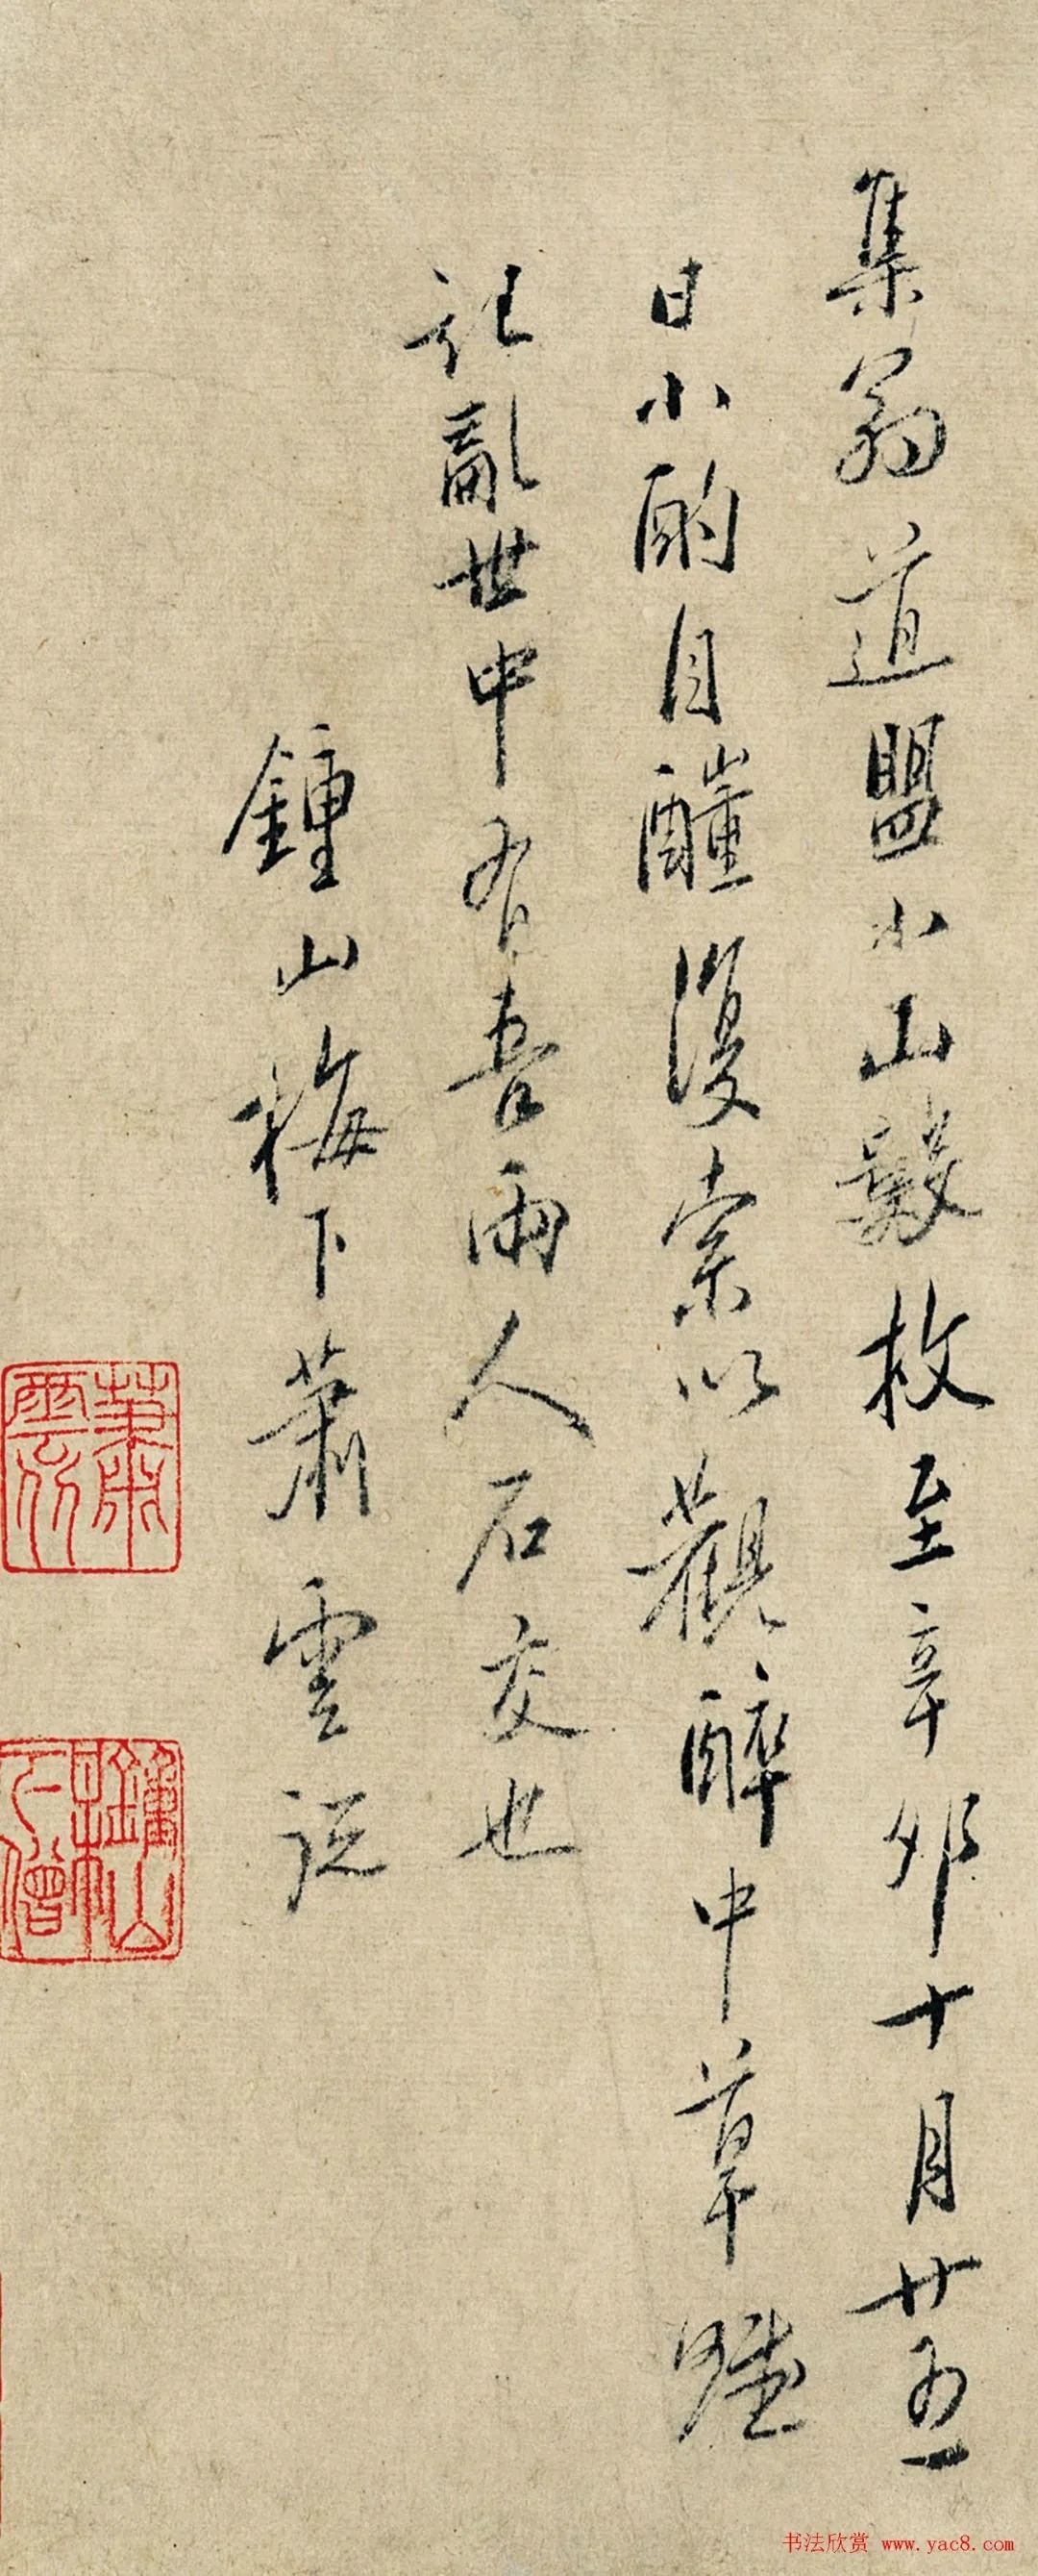 集翁道盟小山數枚至辛卯十月廿五
日小酌自醺復索以觀醉中草
記亂世中有吾兩人石交也
鍾山梅下蕭雲從
蕭雲從
鍾山梅下僧
书法欣赏 www.yac8.com